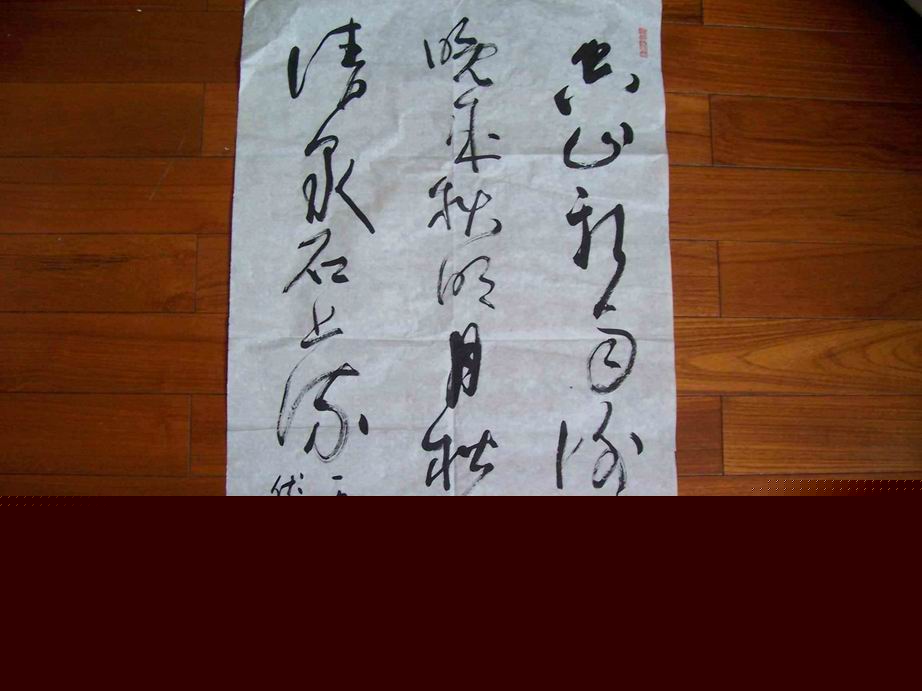 空山新雨後
晚来秋明月松
清泉石上流